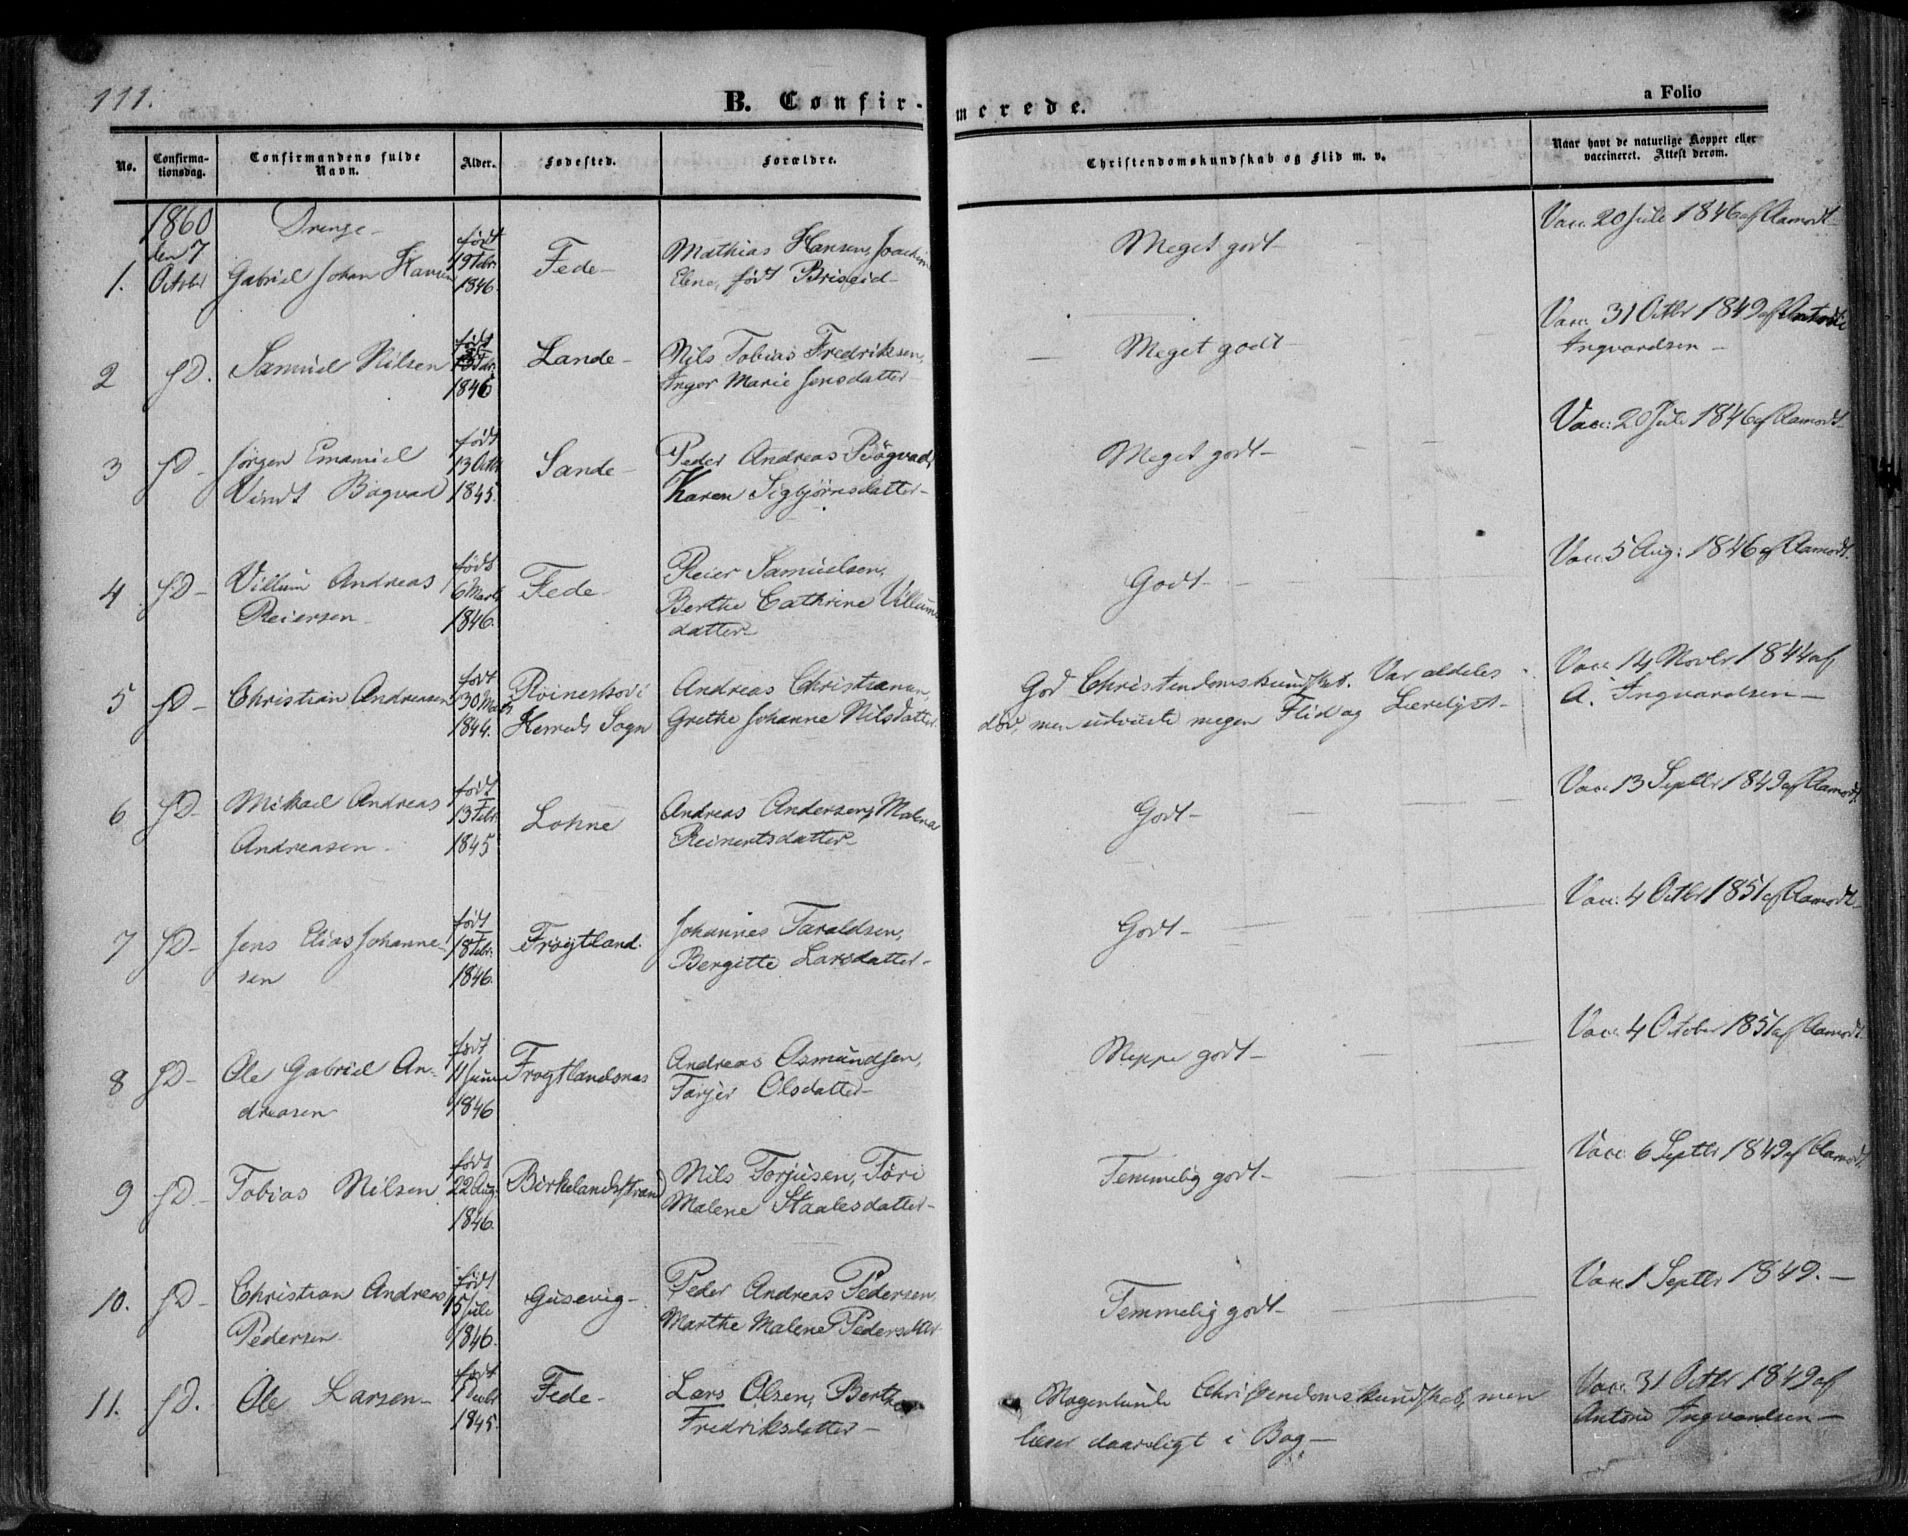 111.
B. Confirmerede.
a Folio
No.
Confirmationsdag.
Confirmandens fulde Navn.
Alder.
Fødested.
Forældre.
Christendomskundskab og Flid m. v.
Naar havt de naturlige Kopper eller vaccineret. Attest derom.
1860 Drenge
1. den 7 October Gabriel Johan Hansen født 19 Febr 1846. Fede Mathias Hansen, Joachim
Elene, født Briseid Meget godt Vacc. 20 Juli 1846 af Aamodt
2 fD. Samuel Nilsen født Febr 1846 Lande Nils Tobias Fredriksen,
Inger Marie Jensdatter Meget godt Vacc. 31 Octbr 1849 af Antoni
Ingvardsen
3 fD Jørgen Emanuel
Vindt Bøgvad født 13 Octbr 1845. Sande Peder Andreas Bøgvad,
Karen Sigbjørnsdatter Meget godt Vacc. 20 Juli 1846 af Aamodt
4 fD Villum Andreas
Reiersen født 6 Marts 1846. Fede Reier Samuelsen,
Berthe Cathrine Villums
datter Godt Vacc. 5 Aug. 1846 af Aamodt
5 fD Christian Andreasen født 30 Mai 1844. Qvineshovi
Herreds Sogn Andreas Christiansen,
Grethe Johanne Nilsdatter God Christendomskundskab. Var aldeles
døv, men udviste megen Flid og Lærelyst Vacc 14 Novbr 1844 af
A. Ingvardsen
6 fD Mikael Andreas
Andreasen født 13 Febr 1845 Lohne Andreas Andersen, Malene
Reinertsdatter Godt Vacc 13 Septbr 1849 af Aamodt
7 fD Jens Elias Johanne-
sen født 18 Febr. 1846. Frøytland. Johannes Taraldsen,
Bergitte Larsdatter Godt Vacc. 4 Octbr 1851 af Aamodt
8 fD Ole Gabriel An-
dreasen født 11 Juni 1846 Frøytlandsnas Andreas Asmundsen,
Tarjer Olsdatter Neppe godt Vacc. 4 October 1851 af Aamodt
9 fD Tobias Nilsen født 22 Aug. 1846. Birkelandsstrand Nils Torjusen, Tøri
Malene Staalesdatter Temmelig godt Vacc 6 Septbr 1849 af Aamodt
10. fD Christian Andreas
Pedersen født 15 Juli 1846. Gusevig Peder Andreas Pedersen,
Marthe Malene Pedersdatter Temmelig godt Vacc 1 Septbr 1849.
11. fD. Ole Larsen født 1845. Fede Lars Olsen, Berthe
Fredriksdatter Nogenlunde Christendomskundskab, men
læser daarligt i Bog Vacc. 31 Octbr 1849 af
Antoni Ingvardsen